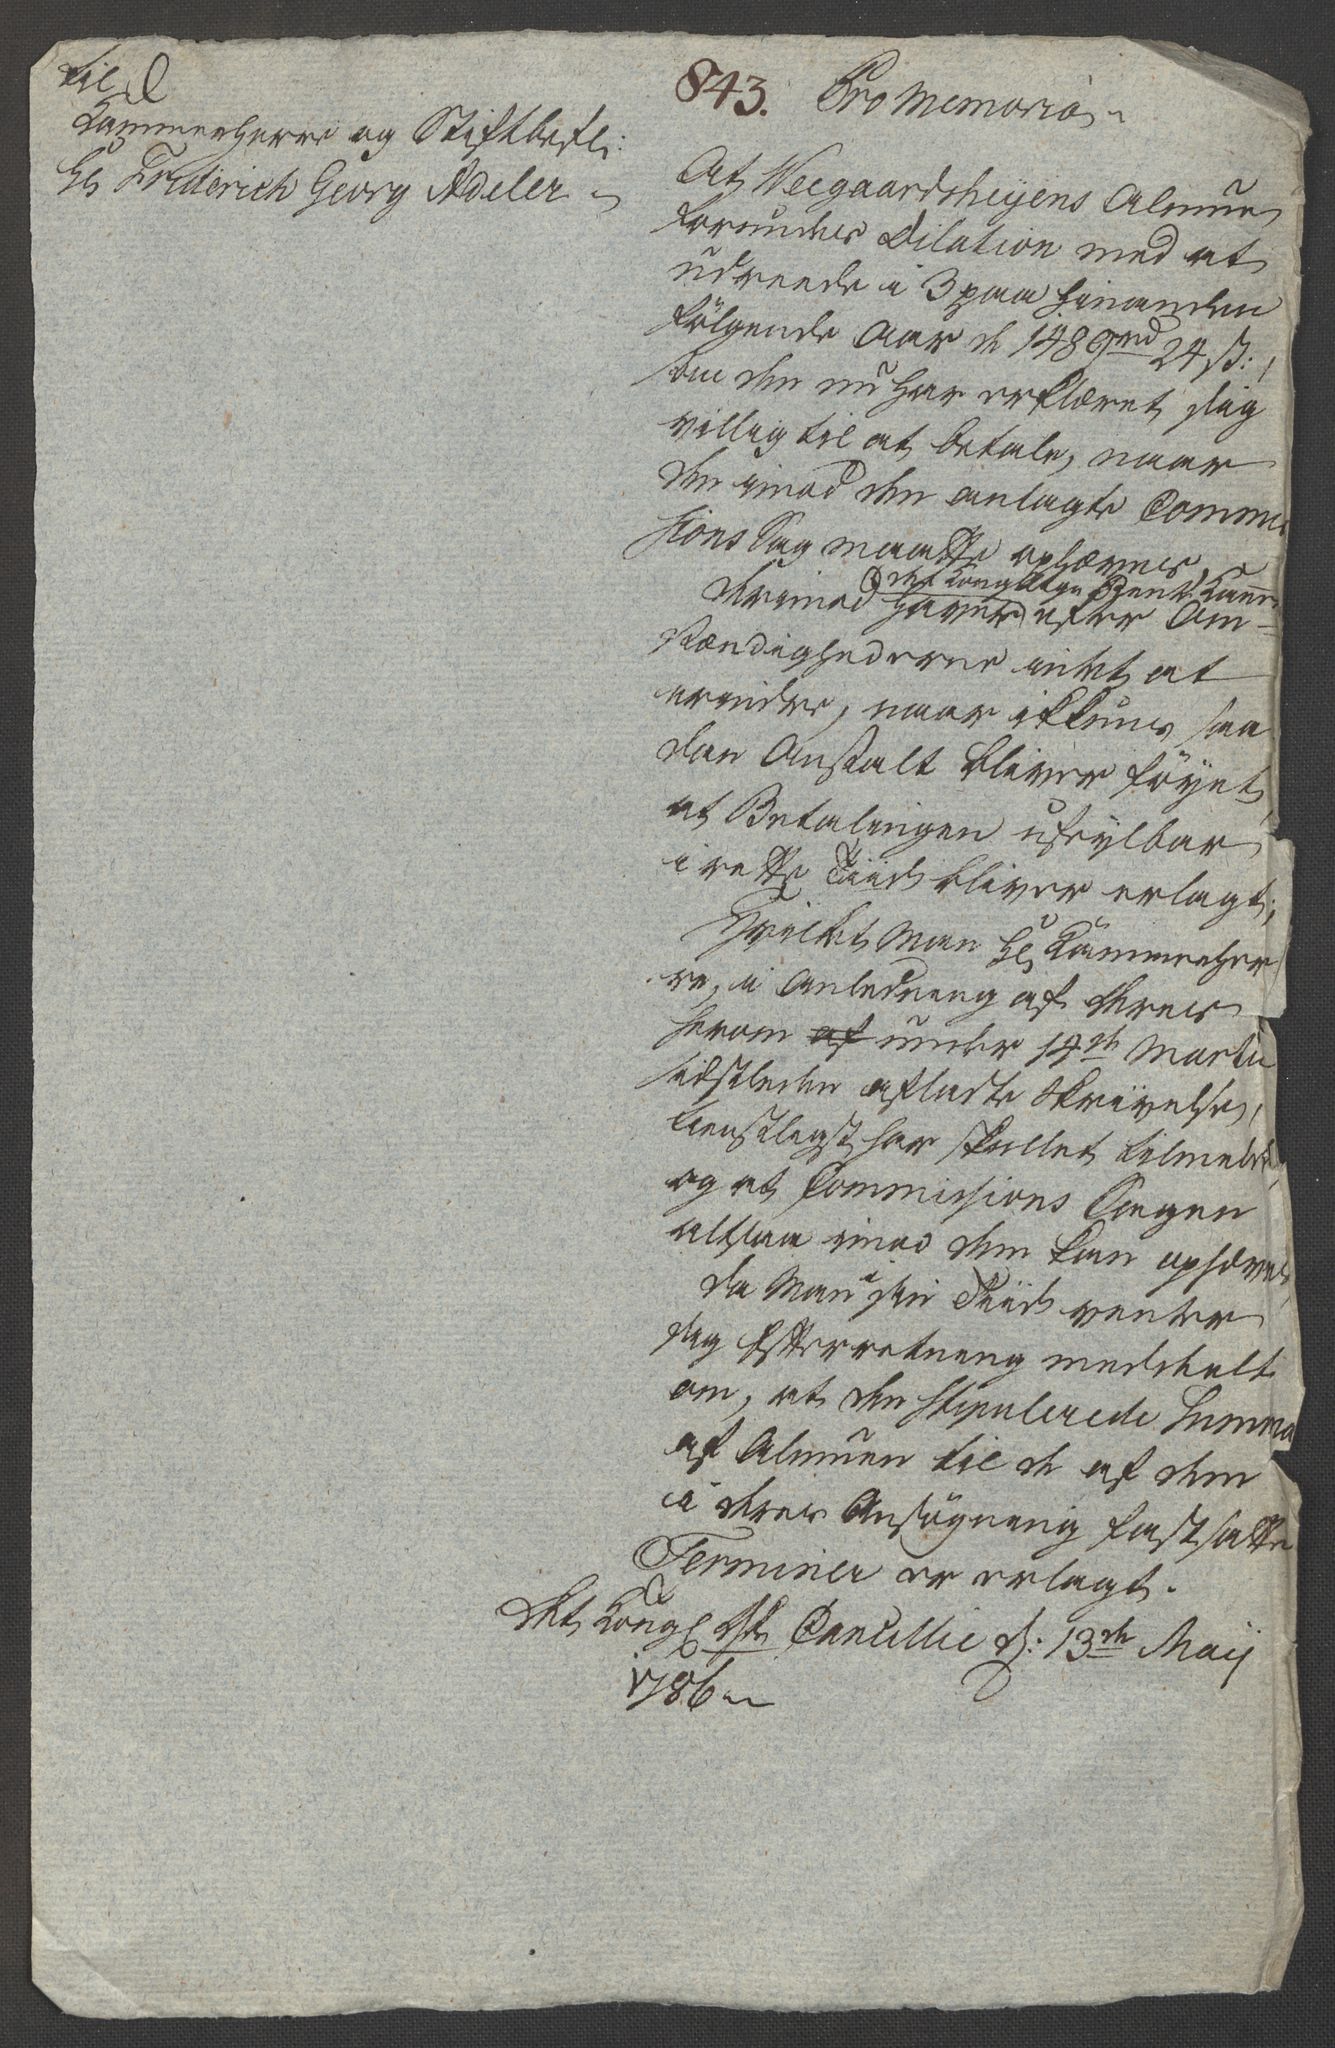 Til
Kammerherre og Stiftbefl:
Hr Friderich Georg Adeler
843. Pro Memoria
At Weegaardsheyens Almue
forundes Dilation med at
udreede i 3 paa hinanden
følgende Aar de 1489 rd 24 s:,
som den nu har erklæret sig
villig til at betale, naar
den imod den anlagte Commis
sions Sag maatte ophæves,
det Kongelige Rente Kammer
derimod haver efter Om-
stændighederne intet at
erindre, naar ikkuns saa
dan Anstalt bliver føyet,
at Betalingen ufeylbar
i rette Tiid bliver erlagt;
Hvilket Man Hr Kammerher
re, i Anledning af Deres
herom af under 14de Martii
sidstleden afladte Skrivelse,
tienstligst har skullet tilmelde,
og at Commissions Sagen
altsaa imod dem kan ophæves,
da Man i sin Tiid venter
sig Efterretning meddeelt
om, at den stipulerede Summa
af Almuen til de af dem
i deres Ansøgning fastsatte
Terminer er erlagt.
Det Kongl Dske Cancellie d: 13de Maij
1786